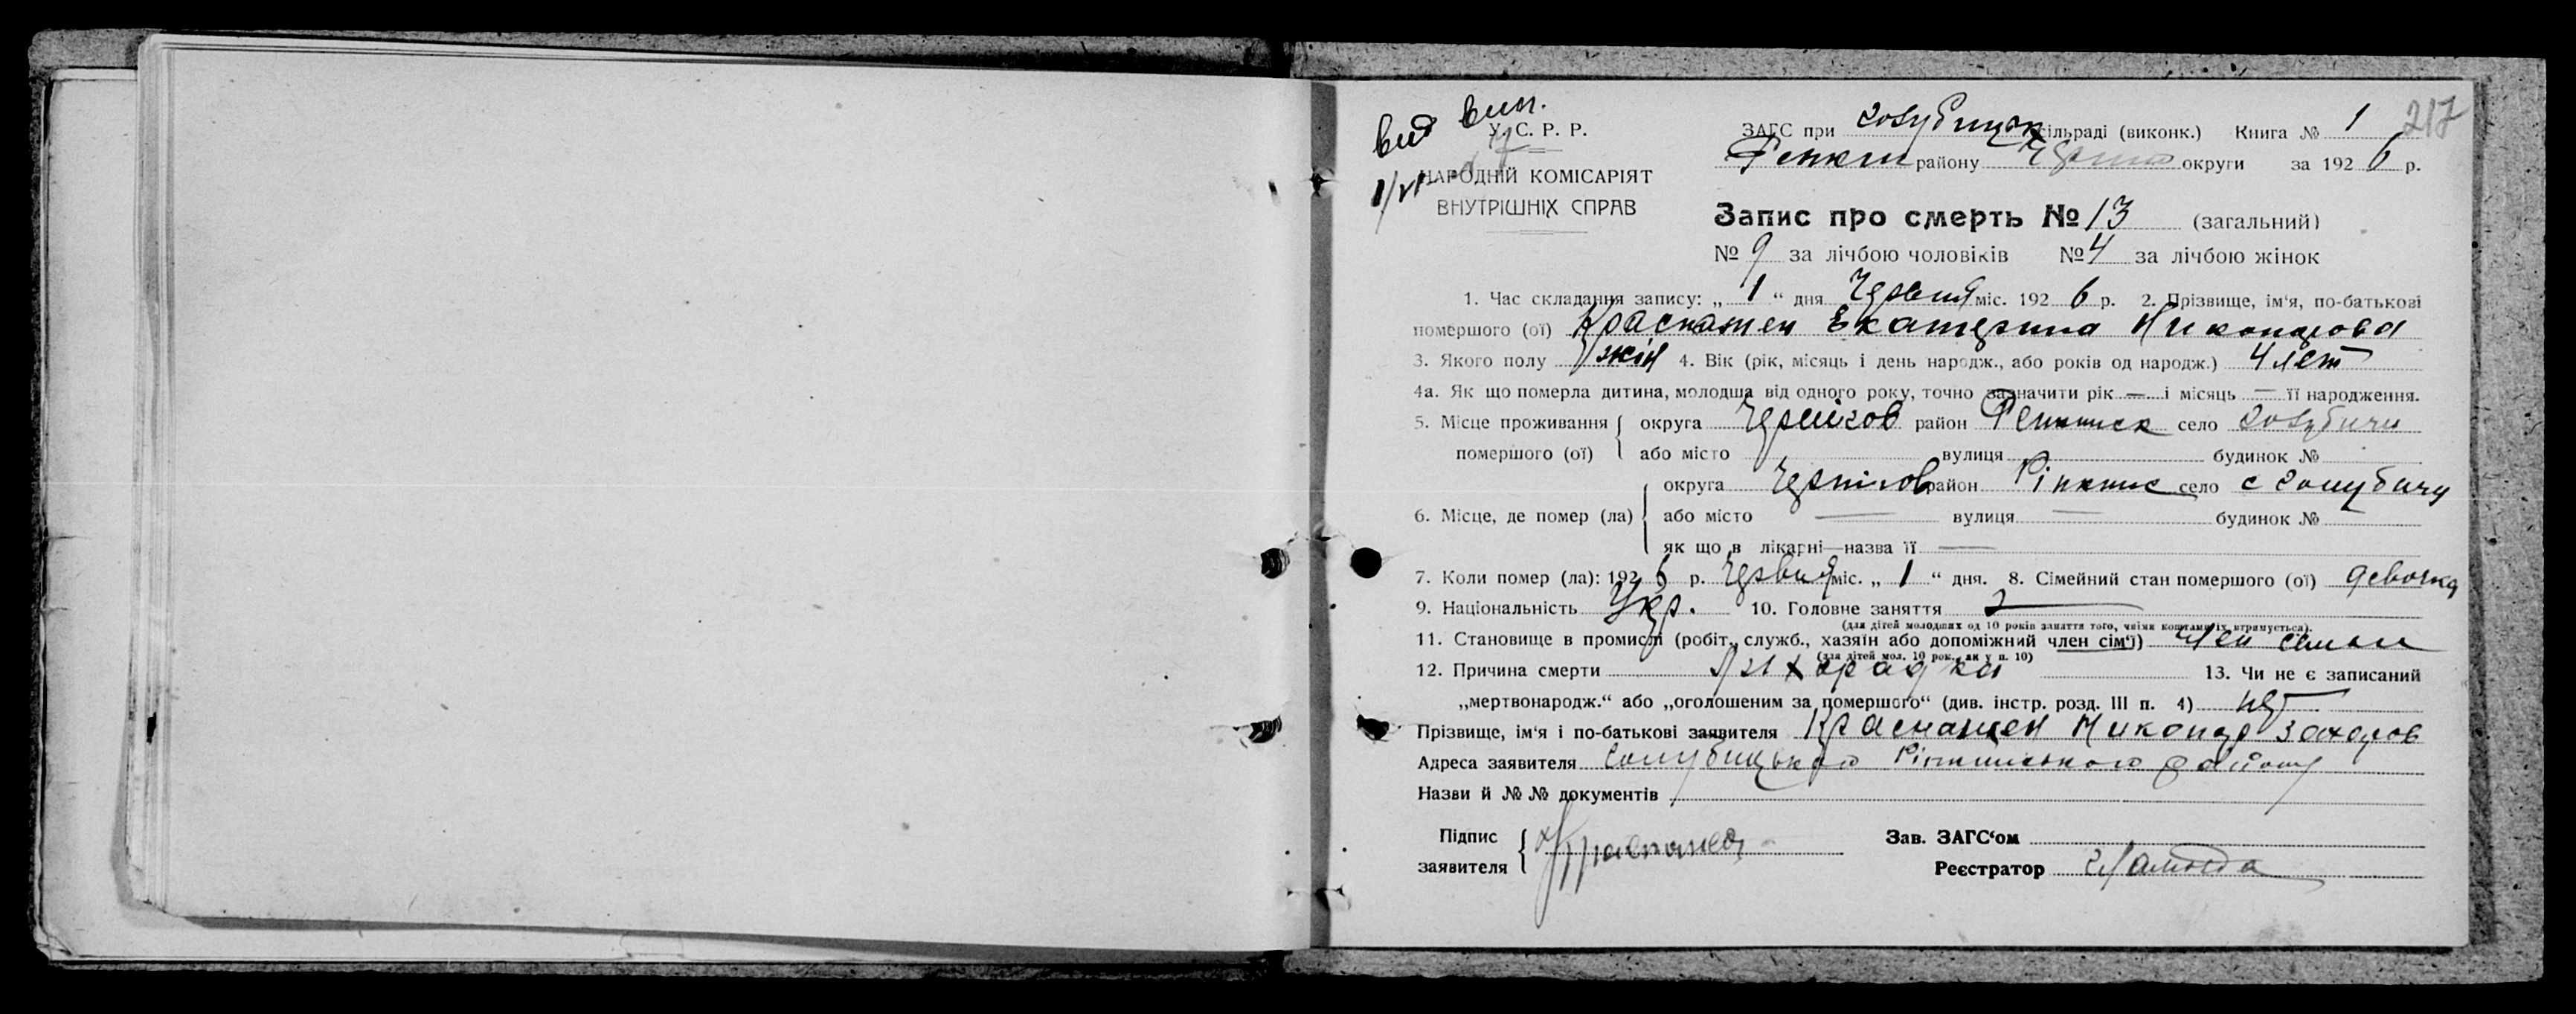 вид вип.
У. С. Р. Р.
1/VI
НАРОДНІЙ КОМІСАРІЯТ
ВНУТРІШНІХ СПРАВ
ЗАГС при Голубицьк сільраді (виконк.) Книга № 1 217
району округи за 1926 р.
Запис про смерть № 13 (загальний)
№ 9 за лічбою чоловіків № 4 за лічбою жінок
1. Час складання запису: „ 1 “ дня Червня міс. 1926 р. 2. Прізвище, ім‘я, по-батькові
помершого (ої) Екатерина
3. Якого полу жін 4. Вік (рік, місяць і день народж., або років од народж.) 4 лет
4а. Як що померла дитина, молодша від одного року, точно зазначити рік — і місяць — її народження.
5. Місце проживання округа Чернігов район село Голубичи
помершого (ої) або місто вулиця будинок №
округа Чернігов район село с Голубичи
6. Місце, де помер (ла) або місто — вулиця — будинок №
як що в лікарні—назва її —
7. Коли помер (ла): 1926 р. Червня міс. „ 1 “ дня. 8. Сімейний стан помершого (ої) девочка
9. Національність Укр. 10. Головне заняття
(для дітей молодших од 10 років заняття того, чиїми коштами їх утримується).
11. Становище в промислі (робіт., служб., хазяїн або допоміжний член сім‘ї) член семьи
(для дітей мол. 10 рок., як у п. 10)
12. Причина смерти лихорадка 13. Чи не є записаний
„мертвонародж.“ або „оголошеним за помершого“ (див. інстр. розд. III п. 4) нет
Прізвище, ім‘я і по-батькові заявителя Захаров
Адреса заявителя району
Назви й №№ документів
Підпис
заявителя
Зав. ЗАГС‘ом
Реєстратор